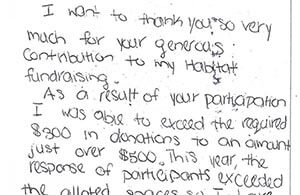 I want to thank you so very
much for your generous
Contribution to my Habitat
fundraising.
As a result of your participation
I was able to exceed the required
$300 in donations to an amount
just over $500. This year, the
response of participants exceeded
the alloted spaces so I